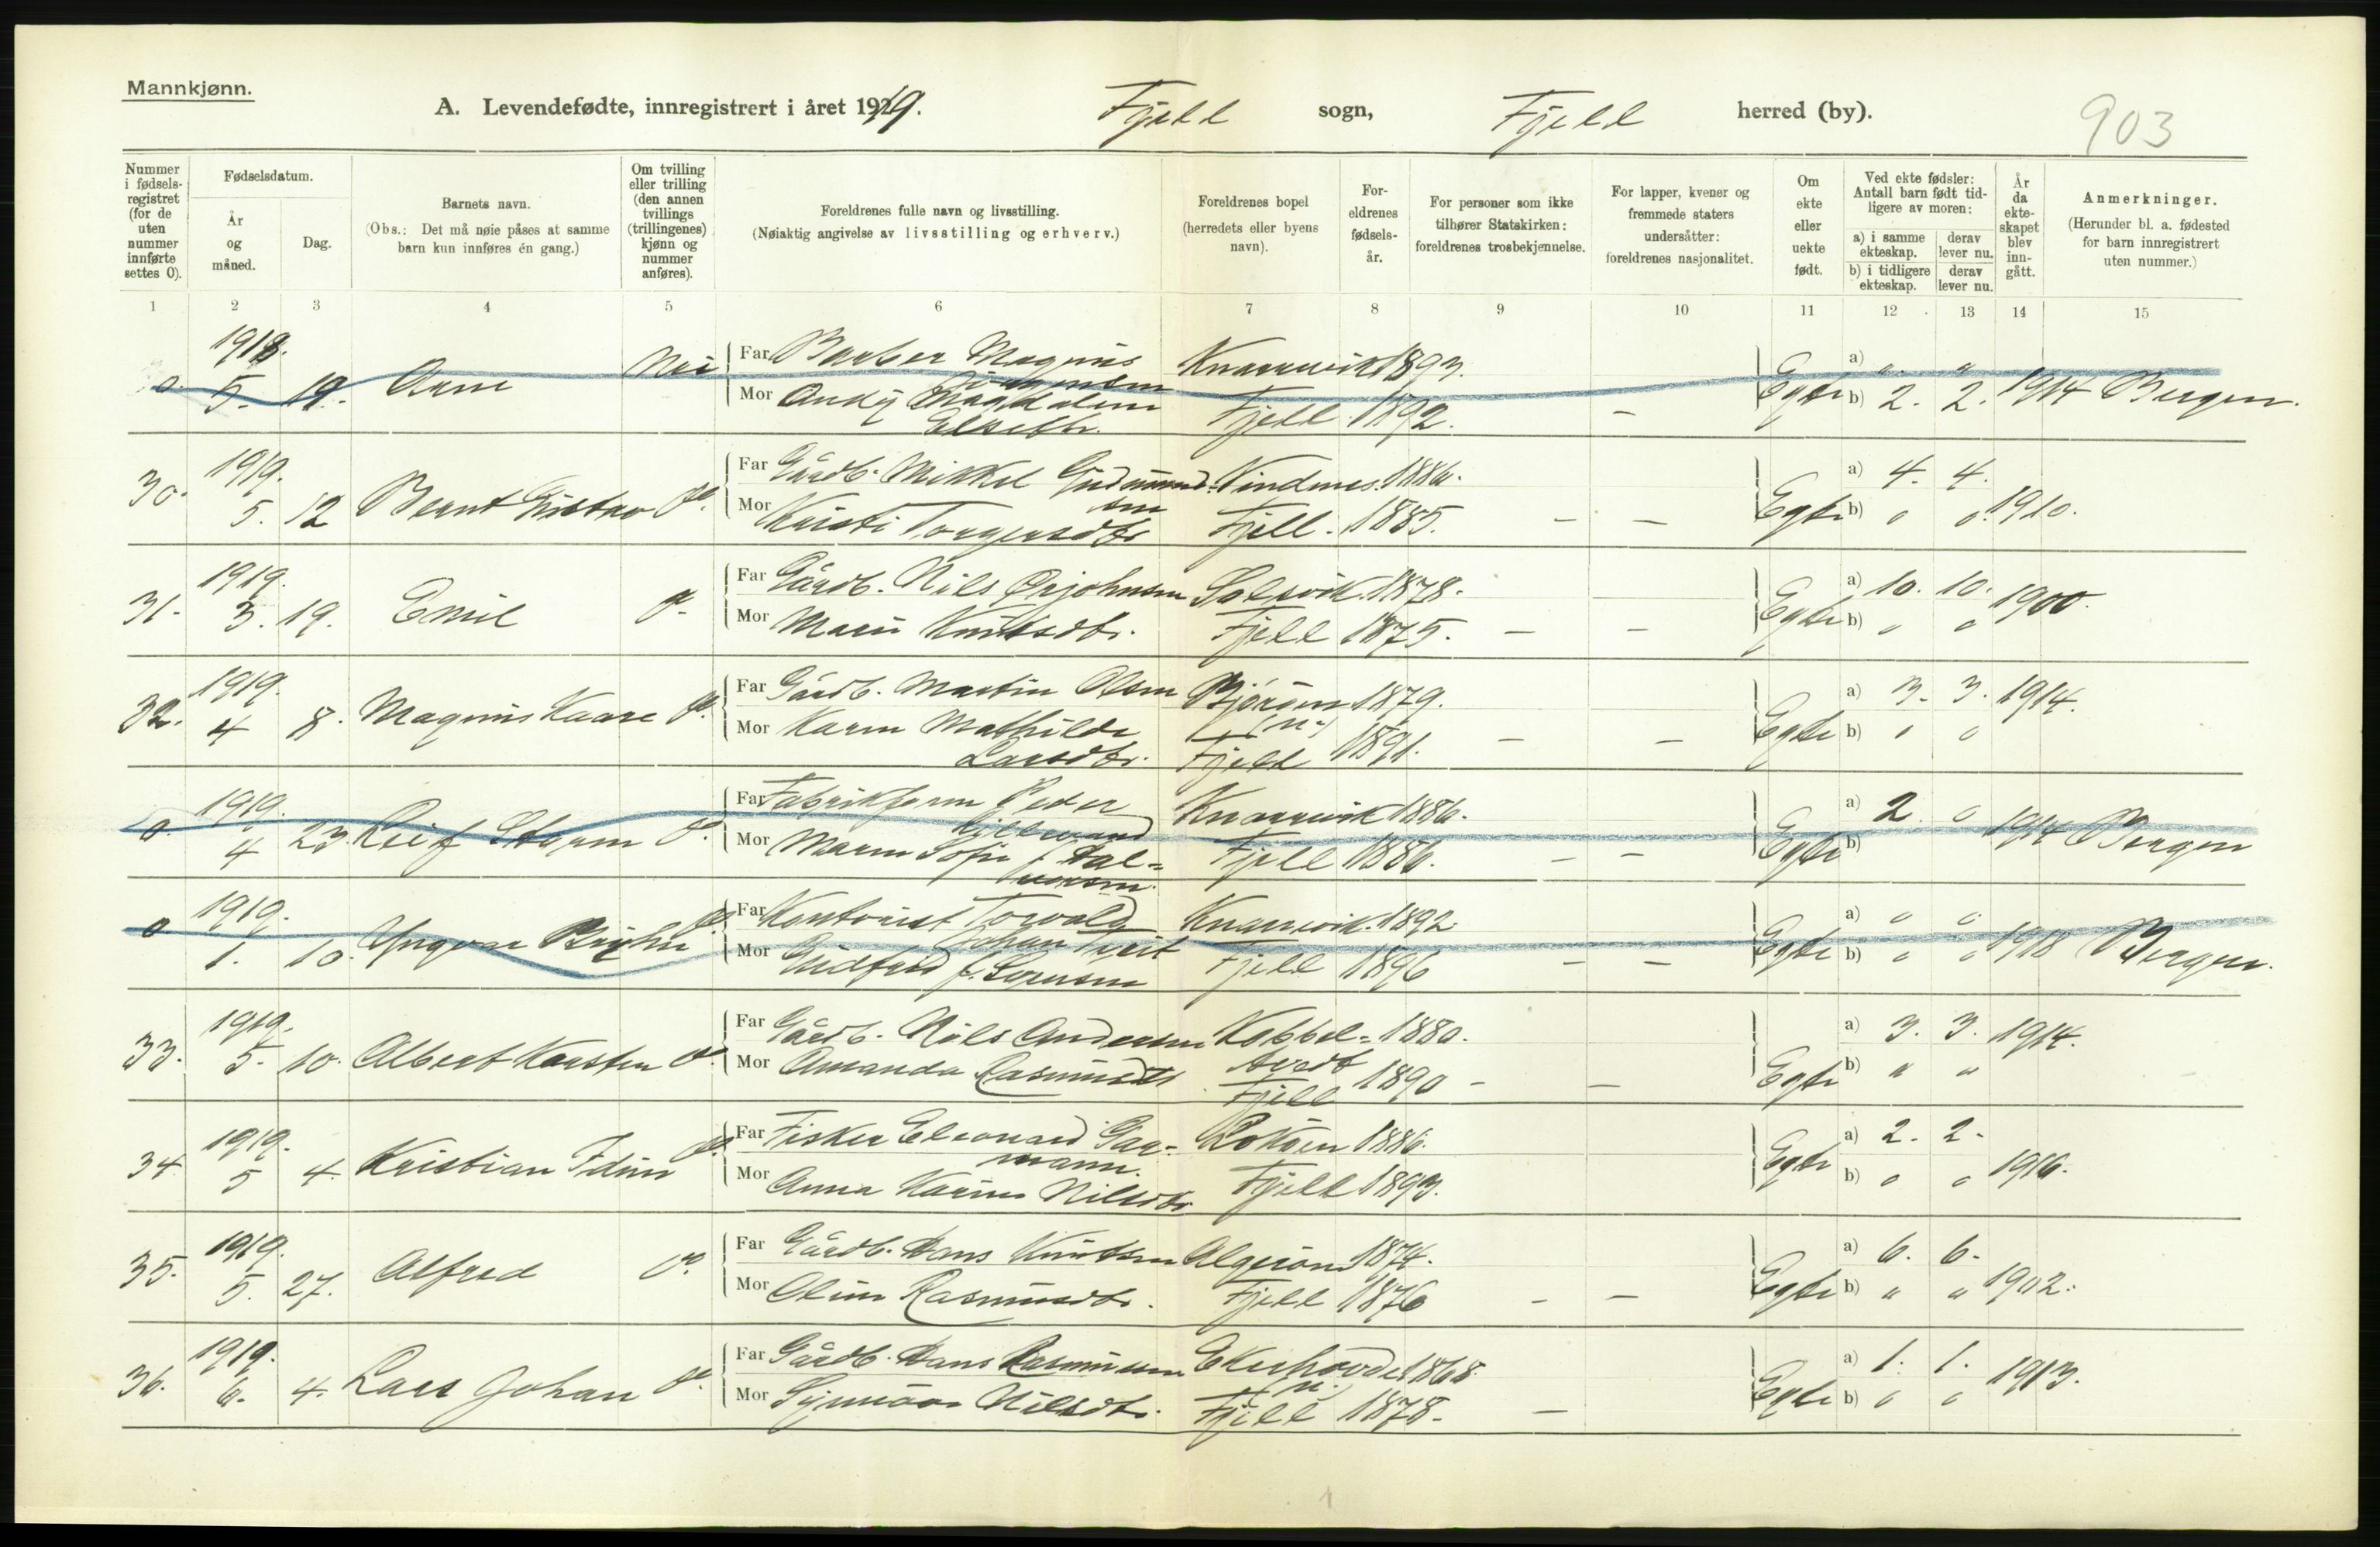 Mannkjønn.
A. Levendefødte, innregistrert i året 1919. Fjell sogn, Fjell herred (by). 903
Nummer i fødselsregistret (for de uten nummer innførte settes 0).
Fødselsdatum.
År og måned.
Dag.
Barnets navn.
(Obs.: Det må nøie påses at samme barn kun innføres én gang.)
Om tvilling eller trilling (den annen tvillings (trillingenes) kjønn og nummer anføres).
Foreldrenes fulle navn og livsstilling.
(Nøiaktig angivelse av livsstilling og erhverv.)
Foreldrenes bopel (herredets eller byens navn).
Foreldrenes fødselsår.
For personer som ikke tilhører Statskirken: foreldrenes trosbekjennelse.
For lapper, kvener og fremmede staters undersåtter: foreldrenes nasjonalitet.
Om ekte eller uekte født.
Ved ekte fødsler: Antall barn født tidligere av moren:
a) i samme ekteskap. derav lever nu.
b) i tidligere ekteskap. derav lever nu.
År da ekteskapet blev inngått.
Anmerkninger.
(Herunder bl. a. fødested for barn innregistrert uten nummer.)
1 2 3 4 5 6 7 8 9 10 11 12 13 14 15
1918. Far Magnus Knarrevik 1893. a) " "
0. 5. 19. Arne Nei Mor Magdalene Fjell 1892. - Egte b) 2. 2. 1914 Bergen.
1919. Far Gårdb. Mikkel Gudmundsen Vindnes. 1886. a) 4. 4.
30. 5. 12 Bernt Gustav Mor Kristi Torgersdtr Fjell. 1885. - - Egte b) " " 1910.
1919. Far Gårdb. Nils Ørjohnsen Solsvik. 1878. a) 10. 10.
31. 3. 19. Emil Mor Mari Knutsdtr. Fjell 1875. - - Egte b) " " 1900.
1919. Far Gårdb. Martin Olsen Bjørøen 1879. a) 3. 3. 1914.
32. 4 8. Magnus Kaare Mor Karen Mathilde Larsdtr. Fjell 1891. - - Egte b) " "
1919. Far Peder Knarrevik 1886. a) 2. "
0. 4 23. Leif Mor Maren Sofie f. Halvorsen. Fjell 1886. - - Egte b) 1914 Bergen
1919. Far Kontorist Torvald Johan Knarrevik. 1892 a) " "
0 1. 10. Yngvar Mor f. Sørensen Fjell 1896 - - Egte b) " " 1918 Bergen.
1919. Far Gårdb. Nils Andersen Kobbeltvedt 1880. a) 3. 3. 1914.
33. 5. 10. Albert Karsten Mor Amanda Rasmusdtr Fjell 1890 - - Egte b) " "
1919. Far Fisker Eleonard Garmann. Lokøen 1886. a) 2. 2.
34. 5 4. Kristian Edvin Mor Anna Karine Nilsdtr Fjell 1893. Egte b) " " 1916.
1919. Far Gårdb. Hans Knutsen Algrøen 1874. a) 6. 6.
35. 5. 27. Alfred Mor Oline Rasmusdtr. Fjell 1876 - - Egte b) " " 1902.
1919. Far Gårdb. Hans Rasmussen Ekerhovde 1868. a) 1. 1. 1913.
36. 6. 4. Lars Johan Mor Synnøve Nilsdtr. Fjell 1878. - Egte b) " "
1